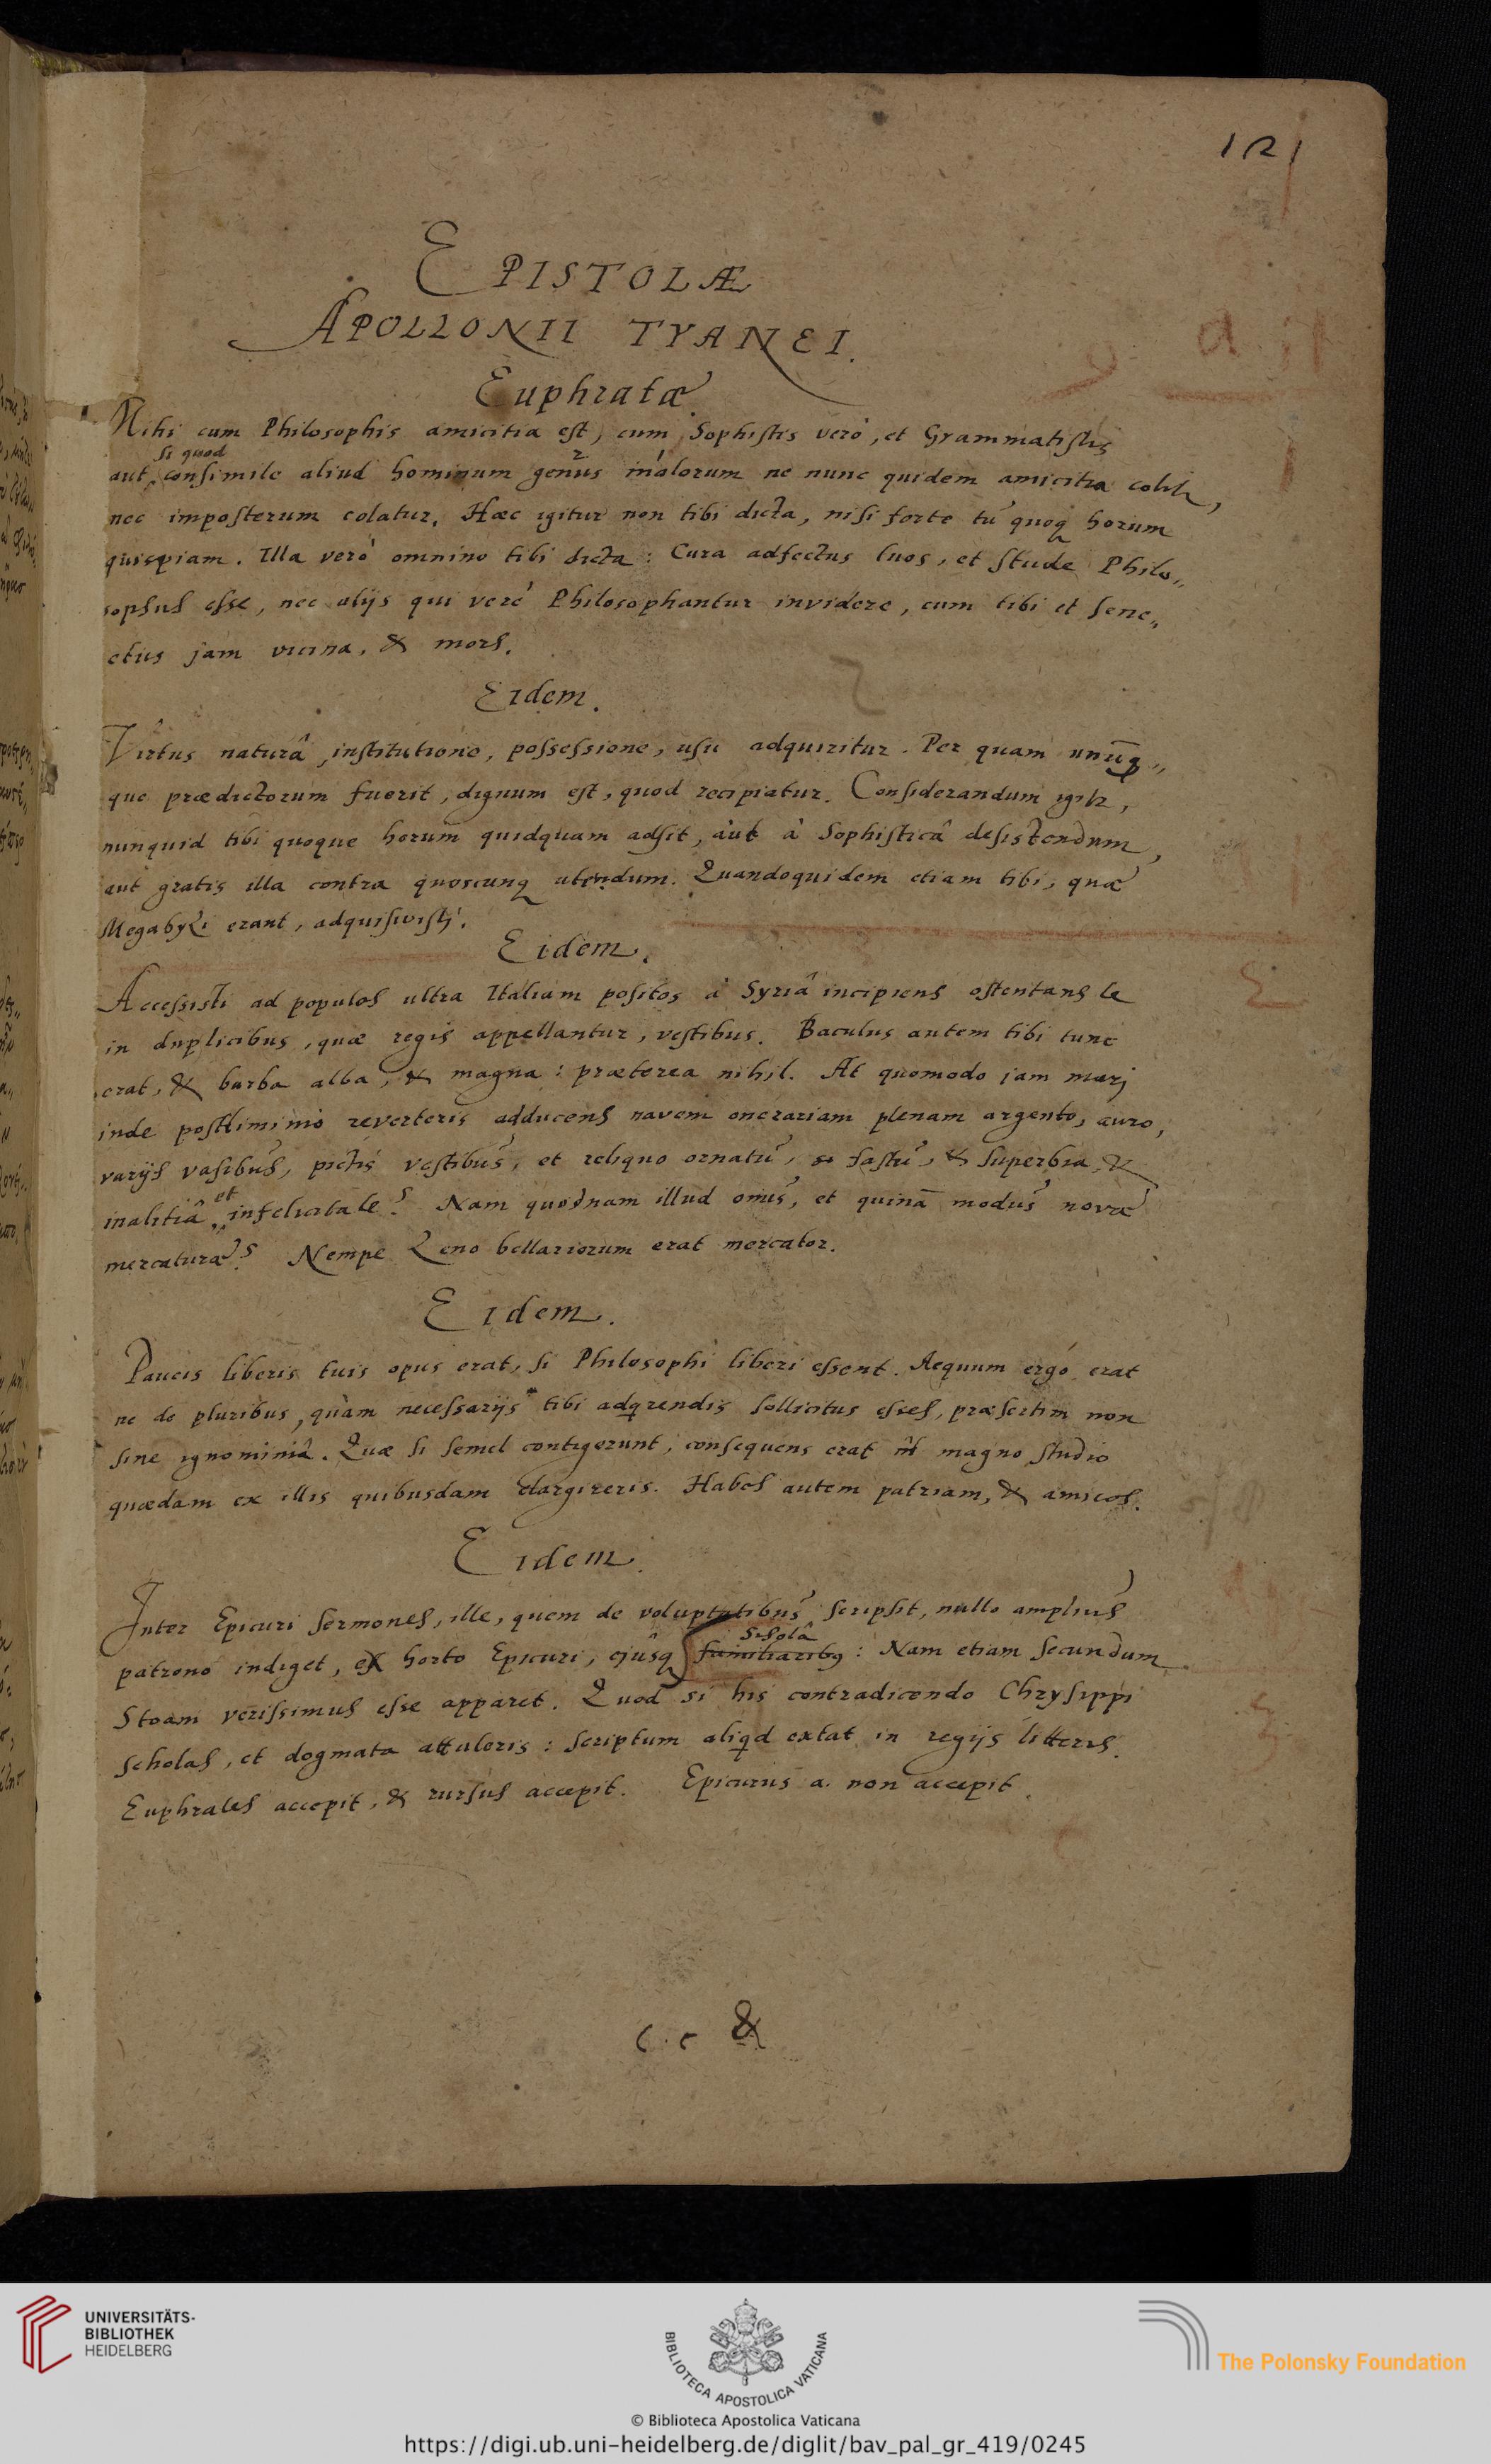 121
EPISTOLÆ
APOLLONII TYANEI.
Euphratæ.
Mihi cum Philosophis amicitia est, cum Sophistis verò, et Grammatistis
si quod
aut consimile aliud hominum genus malorum ne nunc quidem amicitia colitr,
nec imposterum colatur. Hæc igitur non tibi dicta, nisi forte tu quoq horum
quispiam. Illa verò omnino tibi dicta: Cura adfectus tuos, et stude Philo„
sophus esse, nec alijs qui verè Philosophantur invidere, cum tibi et sene„
ctus jam vicina, & mors.
Eidem.
Virtus naturâ, institutione, possessione, usu adquiritur. Per quam unūq„
que prædictorum fuerit, dignum est, quod recipiatur. Considerandum igitr,
nunquid tibi quoque horum quidquam adsit, aut à Sophisticâ desistendum,
aut gratis illa contra quoscunq utendum. Quandoquidem etiam tibi, quæ
Megabyzi erant, adquisivisti.
Eidem.
Accessisti ad populos ultra Italiam positos à Syriâ incipiens ostentans te
in duplicibus, quæ regis appellantur, vestibus. Baculus autem tibi tunc
erat, & barba alba, & magna: præterea nihil. At quomodo jam mari
inde postliminio reverteris adducens navem onerariam plenam argento, auro,
varijs vasibus, pictis vestibus, et reliquo ornatu, fastu, & superbia, &
et
malitiâ, infelicitate? Nam quodnam illud onus, et quinā modus novæ
mercaturæ? Nempe Zeno bellariorum erat mercator.
Eidem.
Paucis liberis tuis opus erat, si Philosophi liberi essent. Aequum ergò erat
ne de pluribus, quàm necessarijs tibi adqrendis sollicitus esses, præsertim non
sine ignominiâ. Quæ si semel contigerunt, consequens erat magno studio
quædam ex illis quibusdam elargireris. Habes autem patriam, & amicos.
Eidem.
Inter Epicuri sermones, ille, quem de voluptatibus scripsit, nullo amplius
scholâ
patrono indiget, ex horto Epicuri, ejusq familiaribq: Nam etiam secundum
Stoam verissimus esse apparet. Quod si his contradicendo Chrysippi
scholas, et dogmata attuleris: scriptum aliqd extat in regijs litteris.
Euphrates accepit, & rursus accepit. Epicurus a. non accepit.
c.c &
UNIVERSITÄTS-
BIBLIOTHEK
HEIDELBERG
BIBLIOTECA APOSTOLICA VATICANA
The Polonsky Foundation
© Biblioteca Apostolica Vaticana
https://digi.ub.uni-heidelberg.de/diglit/bav_pal_gr_419/0245